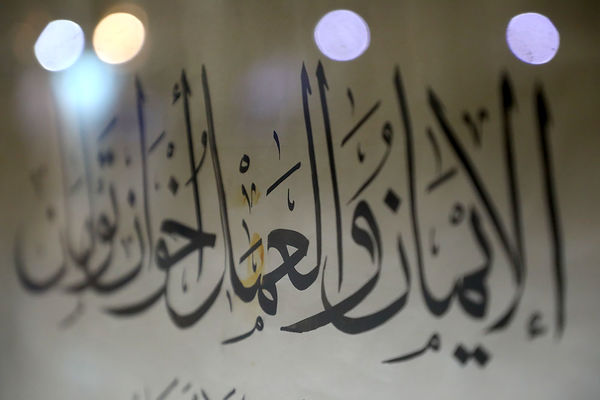 الإيمان والعمل أخوان توأمان